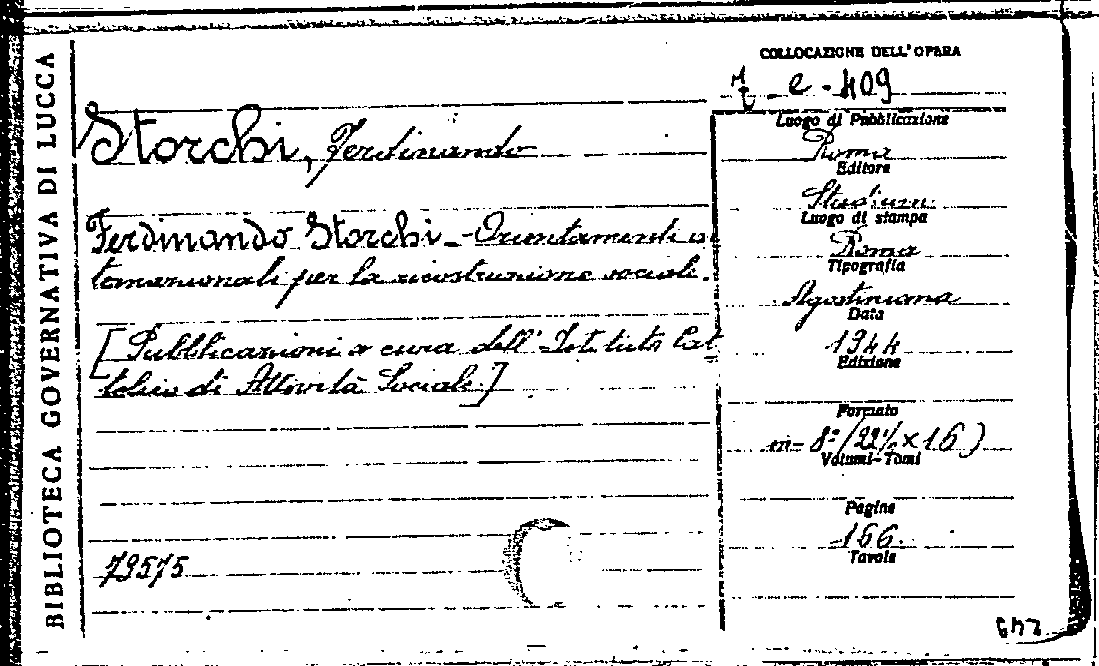 BIBLIOTECA GOVERNATIVA DI LUCCA
COLLOCAZIONE DELL'OPERA
e - 409
Storchi, Ferdinando
Ferdinando Storchi - Orientamenti in
ternazionali per la ricostruzione sociale.
[Pubblicazioni a cura dell'Istituto Cat
tolico di Attività Sociale]
79575
Luogo di Pubblicazione
Roma
Editore
Studium
Luogo di stampa
Roma
Tipografia
Agostiniana
Data
1944
Edizione
Formato
in-8º (22½ × 16)
Volumi-Tomi
Pagine
166.
Tavole